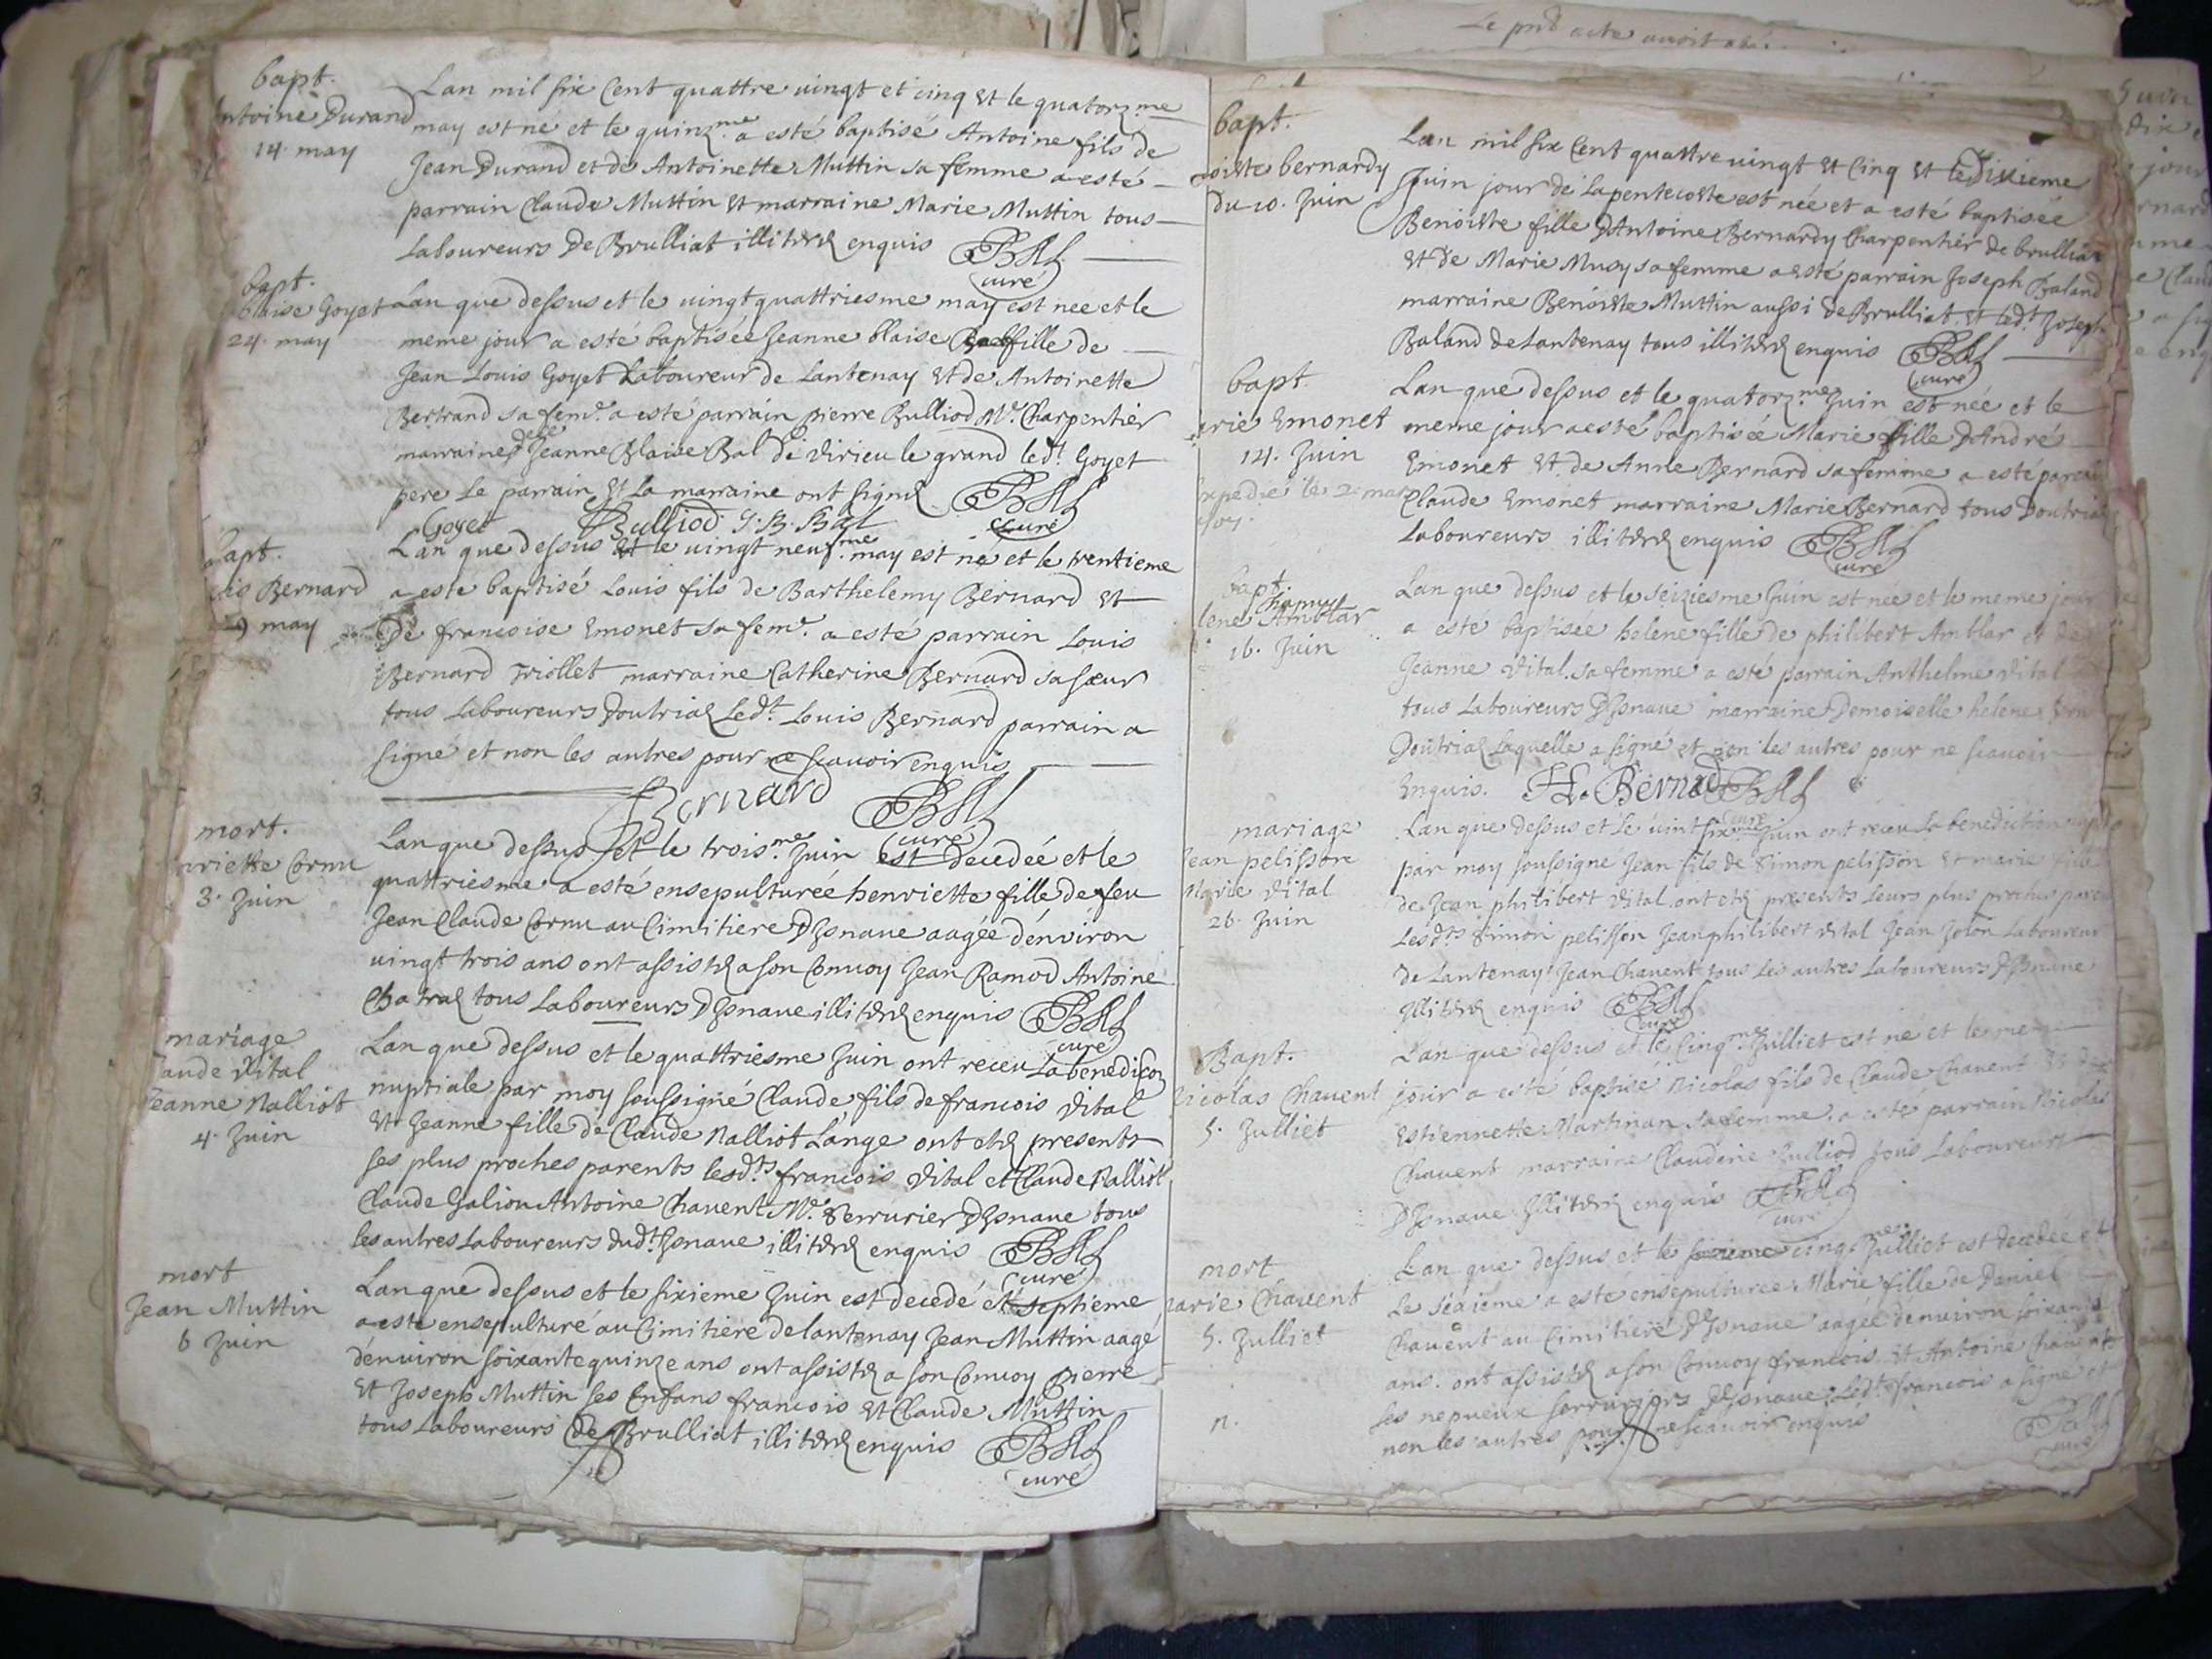 Le pnt acte
bapt.
Antoine Durand
14. may
Lan mil six Cent quattre uingt et cinq et le quatorz.me
may est né et le quinz.me a esté baptisé Antoine fils de
Jean Durand et de Antoinette Muttin sa femme a esté
parrain Claude Muttin et marraine Marie Muttin tous
Laboureurs de Brulliat illiteres enquis
curé
bapt.
blaise Goyet
24. may
Lan que dessus et le uingt quattriesme may est nee et le
meme jour a esté baptisée Jeanne blaise fille de
Jean Louis Goyet Laboureur de Lantenay et de Antoinette
Bertrand sa feme. a esté parrain pierre Bulliod Me. Charpentier
marraine delle Jeanne Blaise Bal de Virieu le grand led.t Goyet
pere Le parrain et La marraine ont signé
Goyet Bulliod J. B. Bal curé
bapt.
Bernard
may
Lan que dessus et le uingt neuf.me may est né et le trentieme
a este baptisé Louis fils de Barthelemy Bernard et
De francoise Emonet sa feme. a esté parrain Louis
Bernard Triollet marraine Catherine Bernard sa sœur
tous Laboureurs Doutriaz Led.t Louis Bernard parrain a
signé et non les autres pour ne scauoir enquis
Bernard
curé
mort.
Cornu
3. Juin
Lan que dessus et le trois.me Juin est decedeé et le
quattriesme a esté ensepulturéé henriette fille de feu
Jean Claude Cornu au Cimitiere DJsnaue aagéé d'enuiron
uingt trois ans ont assistés a son Conuoy Jean Ramod Antoine
Chatral tous Laboureurs DJsnaue illiteres enquis
curé
mariage
Claude Vital
Jeanne Nalliot
4. Juin
Lan que dessus et le quattriesme Juin ont receu La benedicon
nuptiale par moy soussigné Claude fils de francois Vital
et Jeanne fille de Claude Nalliot Lange ont etés presents
ses plus proches parents lesd.ts francois Vital et Claude Nalliot
Claude Galion Antoine Chauent Me. Serrurier DJsnaue tous
les autres Laboureurs dud.t Jsnaue illiteres enquis
curé
mort
Jean Muttin
6 Juin
Lan que dessus et le sixieme Juin est decedé et le septieme
a este ensepulturé au Cimitiere de lantenay Jean Muttin aagé
d'enuiron soixante quinze ans ont assistés a son Conuoy pierre
et Joseph Muttin ses Enfans francois et Claude Muttin
tous Laboureurs de Brulliat illiteres enquis
curé
bapt.
bernardy
du 10. Juin
Lan mil six Cent quattre uingt et Cinq et le Dixieme
Juin jour de La pentecoste est née et a esté baptisée
Benoiste fille D'Antoine Bernardy Charpentier de brulliat
et de Marie Muzy sa femme a esté parrain Joseph Baland
marraine Benoiste Muttin aussi de Brulliat et led.t Joseph
Baland de Lantenay tous illiteres enquis
curé
bapt
Emonet
14. Juin
Expedié le 2. mars
Lan que dessus et le quatorz.me Juin est née et le
meme jour a esté baptisée Marie fille D'André
Emonet et de Anne Bernard sa femme a esté parrain
Claude Emonet marraine Marie Bernard tous Doutriaz
Laboureurs illiteres enquis
curé
bapt.
Amblar
16. Juin
Lan que dessus et le seiziesme Juin est née et le meme jour
a esté baptisee helene fille de philibert Amblar et de
Jeanne Vital sa femme a esté parrain Anthelme Vital
tous Laboureurs DJsnaue marraine Demoiselle helene
Doutriaz Laquelle a signé et non les autres pour ne scauoir
Enquis. H. Bernard
curé
mariage
Jean pelisson
Marie Vital
26. Juin
Lan que dessus et Le uint sixieme Juin ont receu La benediction
par moy soussigné Jean fils de Simon pelisson et marie fille
de Jean philibert Vital ont etés presents Leurs plus proches
Lesd.ts Simon pelisson Jean philibert Vital Jean Jolon Laboureur
de Lantenay Jean Chauent tous les autres Laboureurs DJsnaue
Jlliteres enquis
curé
Bapt.
Nicolas Chauent
5. Julliet
Lan que dessus et le Cinq.me Julliet est né et le meme
jour a esté baptisé Nicolas fils de Claude Chauent et de
Estiennette Martinan sa femme. a esté parrain Nicolas
Chauent marraine Claudine Julliod tous Laboureurs
DJsnaue Jlliteres enquis
curé
mort
Marie Chauent
5. Julliet
Lan que dessus et le cinq.me Julliet est decedéé et
Le sixieme a esté ensepulturéé Marie fille de Daniel
Chauent au Cimitiere DJsnaue aagéé denuiron soixante
ans. ont assistés a son Conuoy francois et Antoine Chauent
ses nepueux serruriers DJsnaue. Led.t francois a signé et
non les autres pour ne scauoir enquis
curé